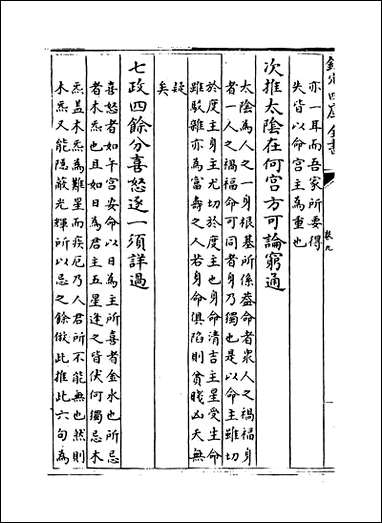 欽定四庫全書
卷九
亦一耳而吾家所要得
失皆以命宮主為重也
次推太陰在何宮方可論窮通
太陰為人之一身根基所係蓋命者衆人之禍福身
者一人之禍福命可同者身乃獨也是以命主雖切
於度主身主尤切於度主也身命清吉主星受生命
雖駁雜亦為富壽之人若身命俱陷則貧賤凶夭無
疑
矣
七政四餘分喜怒逐一須詳過
喜怒者如午宮安命以日為主所喜者金水也所忌
者木炁也且如日為君主五星逢之皆伏何獨忌木
炁蓋木炁為難星而疾厄乃人君所不能無也然則
木炁又能隱蔽光輝所以忌之餘倣此推此六句為